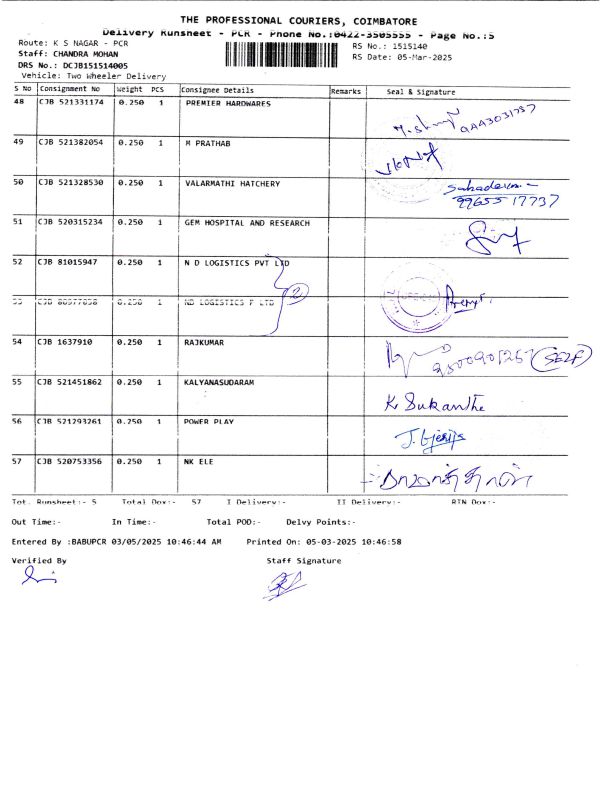 THE PROFESSIONAL COURIERS, COIMBATORE
Delivery Runsheet - PCR - Phone No.:0422-3505555 - Page No.:5
Route: K S NAGAR - PCR
RS No.: 1515140
Staff: CHANDRA MOHAN
RS Date: 05-Mar-2025
DRS No.: DCJB151514005
Vehicle: Two Wheeler Delivery
S No Consignment No Weight PCS Consignee Details Remarks Seal & Signature
48 CJB 521331174 0.250 1 PREMIER HARDWARES
49 CJB 521382054 0.250 1 M PRATHAB
50 CJB 521328530 0.250 1 VALARMATHI HATCHERY
9965517737
51 CJB 520315234 0.250 1 GEM HOSPITAL AND RESEARCH
52 CJB 81015947 0.250 1 N D LOGISTICS PVT LTD
2
53 CJB 80977858 0.250 1 ND LOGISTICS P LTD
54 CJB 1637910 0.250 1 RAJKUMAR
SELF
55 CJB 521451862 0.250 1 KALYANASUDARAM
K Sukanthe
56 CJB 521293261 0.250 1 POWER PLAY
57 CJB 520753356 0.250 1 NK ELE
Tot. Runsheet:- 5 Total Dox:- 57 I Delivery:- II Delivery:- RTN Dox:-
Out Time:- In Time:- Total POD:- Delvy Points:-
Entered By :BABUPCR 03/05/2025 10:46:44 AM Printed On: 05-03-2025 10:46:58
Verified By Staff Signature